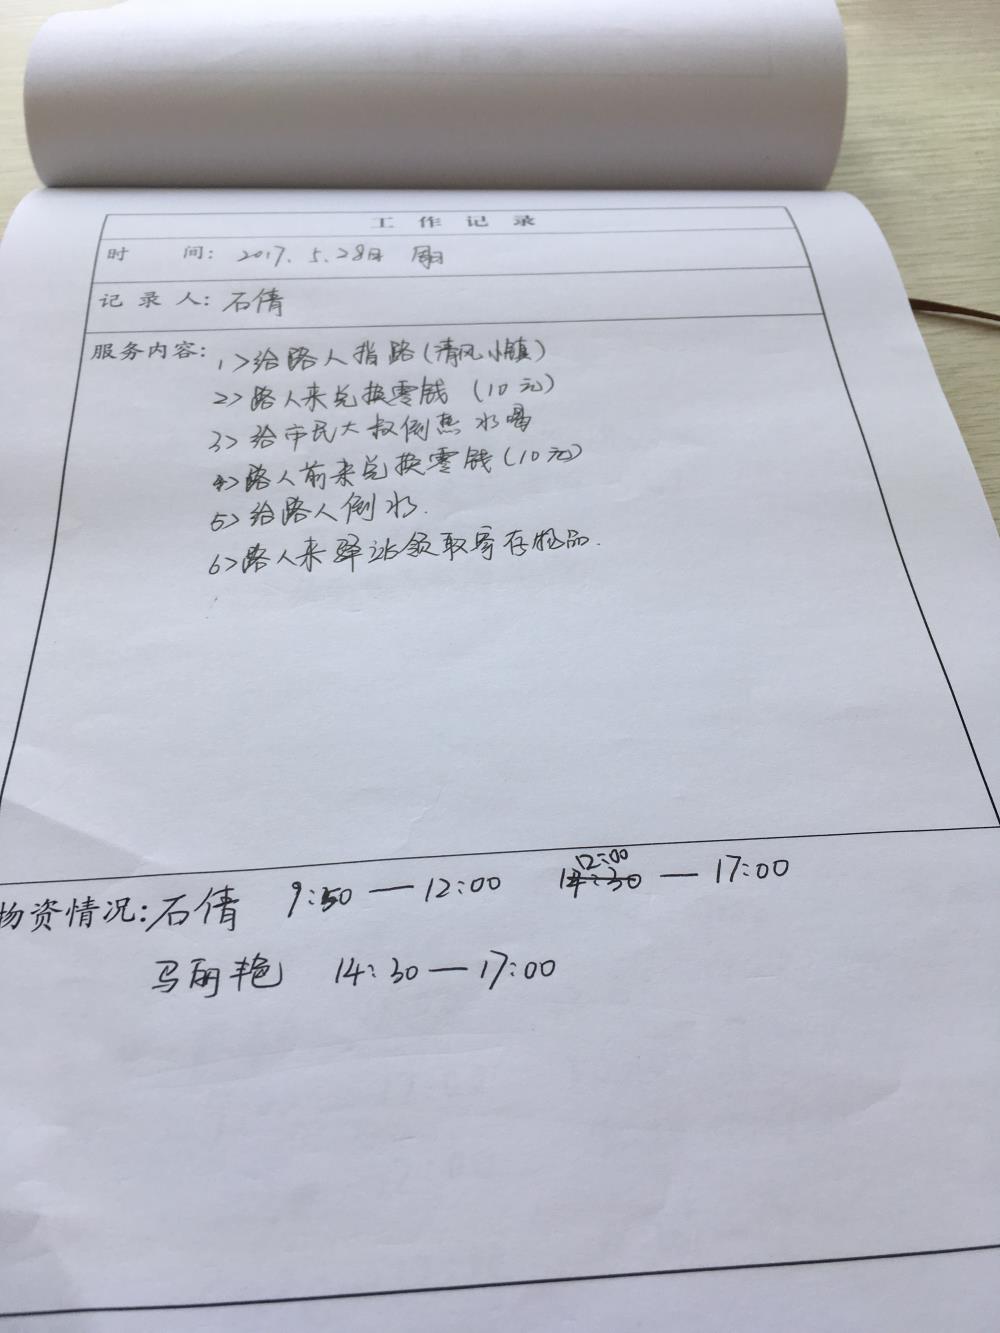 工作记录
时 间: 2017.5.28日 周日
记录人: 石倩
服务内容: 1>给路人指路(清风小镇)
2>路人来兑换零钱 (10元)
3>给市民大叔倒热水喝
4>路人前来兑换零钱(10元)
5>给路人倒水.
6>路人来驿站领取寄存物品.
物资情况: 石倩 9:50—12:00 12:00—17:00
马丽艳 14:30—17:00